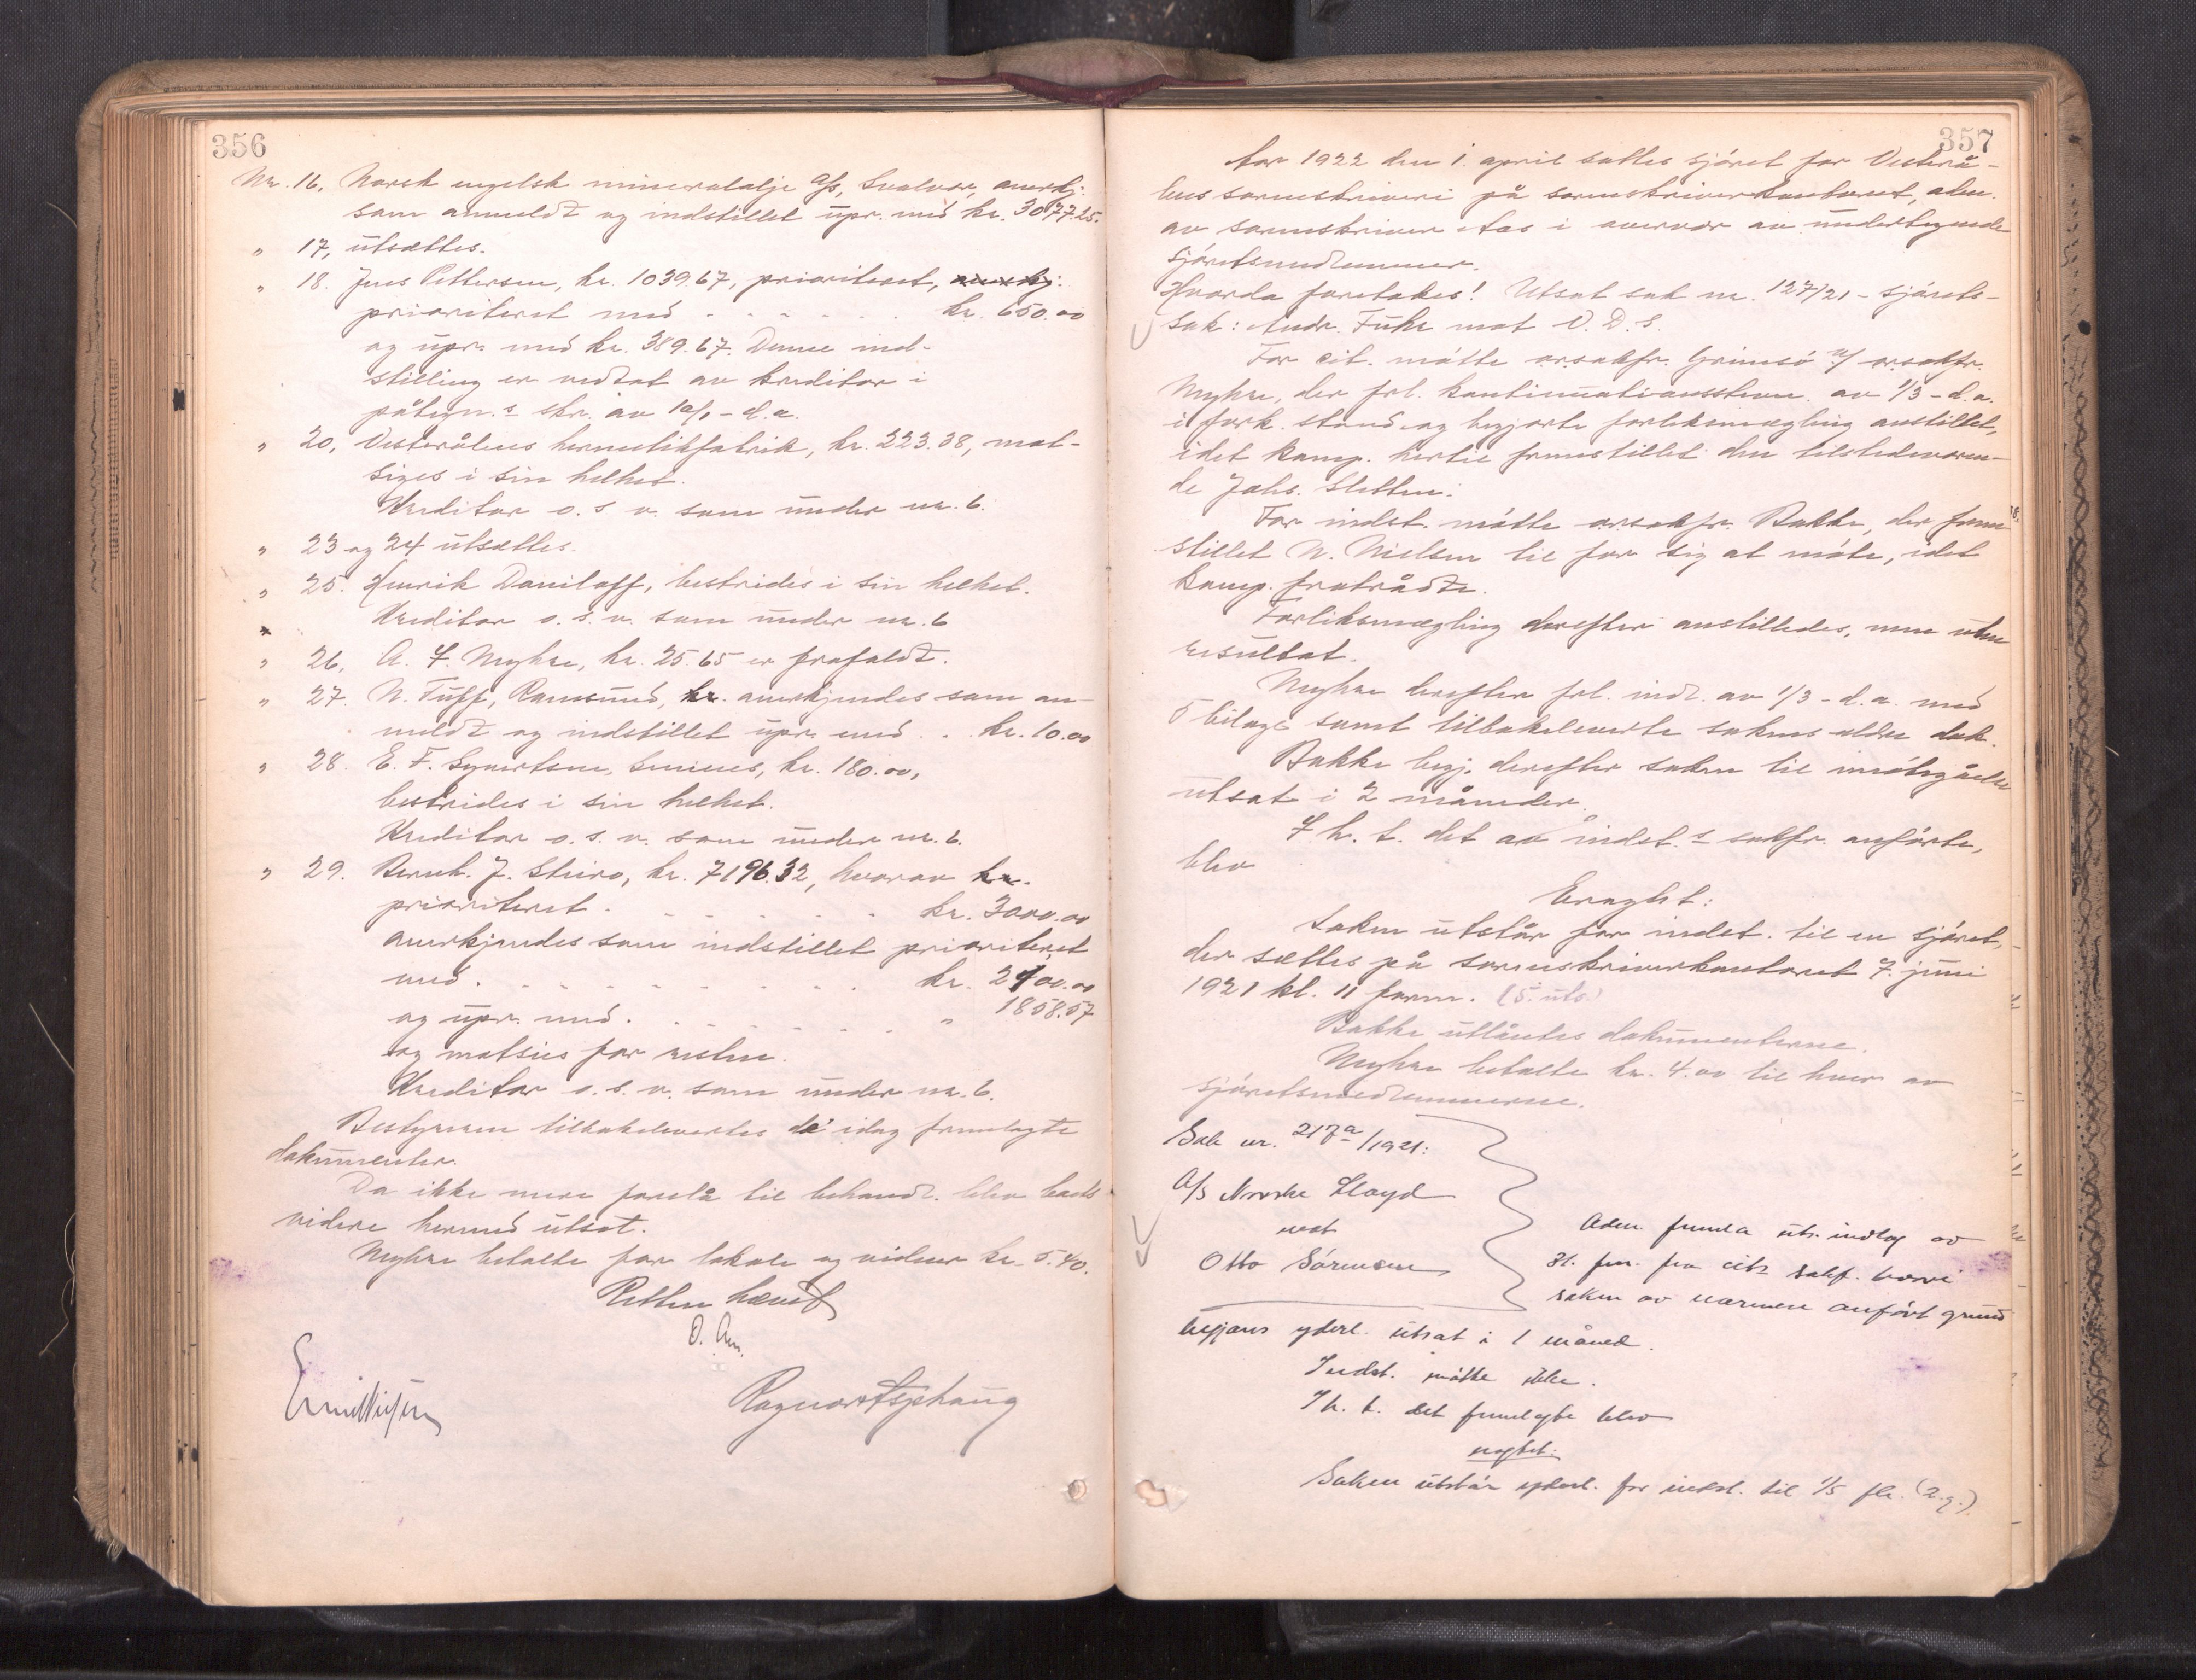 356
Nr. 16. Norsk engelsk mineralolje A/S, Svolvær, anerkj.
som anmeldt og indstillet upr. med kr. 3077.25.
" 17, utsættes.
" 18. Jens Pettersen, kr. 1039.67, prioritert,
prioriteret med . . . . . . kr. 650.00
og upr. med kr. 389.67. Denne ind-
stilling er vedtat av kreditor i
påtegn.s skr. av 10/1 - d.a.
" 20, Vesterålens hermetikfabrik, kr. 223.38, mot-
siges i sin helhet.
Kreditor o.s.v. som under nr. 6.
" 23 og 24 utsættes.
" 25. Henrik Daniloff, bestrides i sin helhet.
Kreditor o.s.v. som under nr. 6
" 26, A. F. Myhre, kr. 25.65 er frafaldt.
" 27. N. Tuff, Ramsund, kr. anerkjendes som an-
meldt og indstillet upr. med . . kr. 10.00
" 28. E. F. Syvertsen, kr. 180.00,
bestrides i sin helhet.
Kreditor o.s.v. som under nr. 6.
" 29. Bernh. J. Steiro, kr. 7196.32, hvorav kr.
prioriteret . . . . . . kr. 3000.00
anerkjendes som indstillet prioriteret
med . . . . . . . . kr. 2400.00
og upr. med . . . . . . . " 1858.57
og motsies for resten.
Kreditor o.s.v. som under nr. 6.
Bestyreren tilbakelevertes de idag fremlagte
dokumenter.
Da ikke mere forelå til behandl. blev boets
videre hermed utsat.
Myhre betalte for lokale og vidner kr. 5.40.
Petter
O. Aas.
357
Aar 1922 den 1. april sattes sjöret for Vesterå-
lens sorenskriveri på sorenskriverkontoret, adm.
av sorenskriver Aas i overvær av undertegnede
sjöretsmedlemmer.
Hvorda foretokes! Utsat sak nr. 127/21 - sjörets-
sak: Andr. Fuhr mot V. D. S.
For cit. mötte orsakfr. Grimsö v/ orsakfr.
Myhre, der frl. kontinuationsstevn. av 1/3 - d.a.
i fork. stand og begjærte forliksmægling anstillet,
idet komp. hertil fremstillet den tilstedeværen-
de Johs. Sletten.
For indst. mötte orsakfr. Bakke, der frem-
stillet N. Nielsen til for sig at möte, idet
komp. fratrådte.
Forliksmægling derefter anstilledes, men uten
resultat.
Myhre derefter frl. indl. av 1/3 - d.a. med
5 bilage samt tilbakeleverte sakens ældre dok.
Bakke begj. derefter saken til imötegåelse
utsat i 2 måneder.
I h. t. det av indst.s sakfr. anförte,
blev
Eragtet:
Saken utstår for indst. til en sjöret,
der sættes på sorenskriverkontoret 7. juni
1921 kl. 11 form. (5. uts.)
Bakke utlåntes dokumenterne.
Myhre betalte kr. 4.00 til hver av
sjöretsmedlemmerne.
Sak nr. 217a/1921:
A/S Norske Lloyd
mot
Otto Sörensen
Adm. fremla uts. indlag av
31. f.m. fra cit.s sakf. hvori
saken av nærmere anfört grund
begjæres yderl. utsat i 1 måned.
Indst. mötte ikke.
I h. t. det fremlagte blev
eragtet:
Saken utstår yderl. for indst. til 1/5 flg. (2. g.)